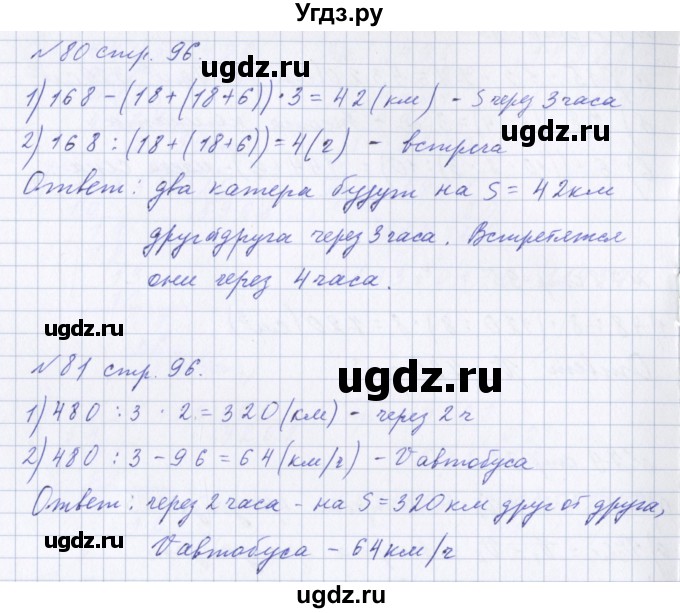 Угдз.ру
№80 стр. 96.
ugdz.ru
ugdz.ru
1) 168 - (18 + (18 + 6)) · 3 = 42 (км) - S через 3 часа
2) 168 : (18 + (18 + 6)) = 4 (ч) - встреча
ugdz.ru
Ответ: два катера будут на S = 42 км
друг от друга через 3 часа. Встретятся
они через 4 часа.
ugdz.ru
ugdz.ru
№81 стр. 96.
ugdz.ru
1) 480 : 3 · 2 = 320 (км) - через 2 ч
2) 480 : 3 - 96 = 64 (км/ч) - V автобуса
Ответ: через 2 часа - на S = 320 км друг от друга,
ugdz.ru
ugdz.ru
V автобуса - 64 км/ч
ugdz.ru